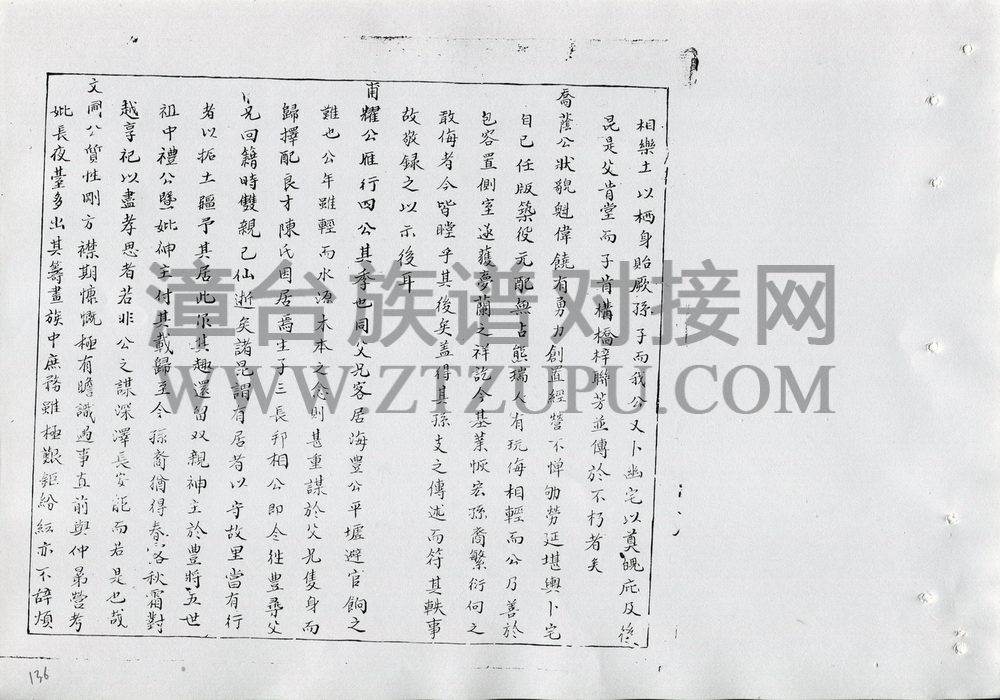 相樂土以栖身貽厥孫子而我公又卜幽宅以奠魄庇及後
昆是父肯堂而子肯構橋梓聯芳並傳於不朽者矣
喬蔭公狀貌魁偉饒有勇力創置經營不憚劬勞延堪輿卜宅
自己任版築役元配無占熊瑞人有玩侮相輕而公乃善於
包容置側室遂獲夢蘭之祥訖今基業恢宏孫裔繁衍向之
敢侮者今皆瞠乎其後矣盖得其孫支之傳述而符其軼事
故敬録之以示後耳
甫耀公雁行四公其季也同父兄客居海豊公平墟避官餉之
難也公年雖輕而水源木本之念則甚重謀於父兄隻身而
歸擇配良才陳氏因居焉生子三長邦相公即令往豊尋父
兄回籍時雙親已仙逝矣諸昆謂有居者以守故里當有行
者以拓土疆予其居此爾其趣還留双親神主於豊將五世
祖中禮公曁妣神主付其載歸至今孫裔猶得春露秋霜對
越享祀以盡孝思者若非公之謀深澤長安能而若是也哉
文同公質性剛方襟期慷慨極有膽識遇事直前與仲弟營考
妣長夜臺多出其籌畫族中庶務雖極艱鉅紛紜亦不辭煩
漳台族谱对接网
WWW.ZTZUPU.COM
136